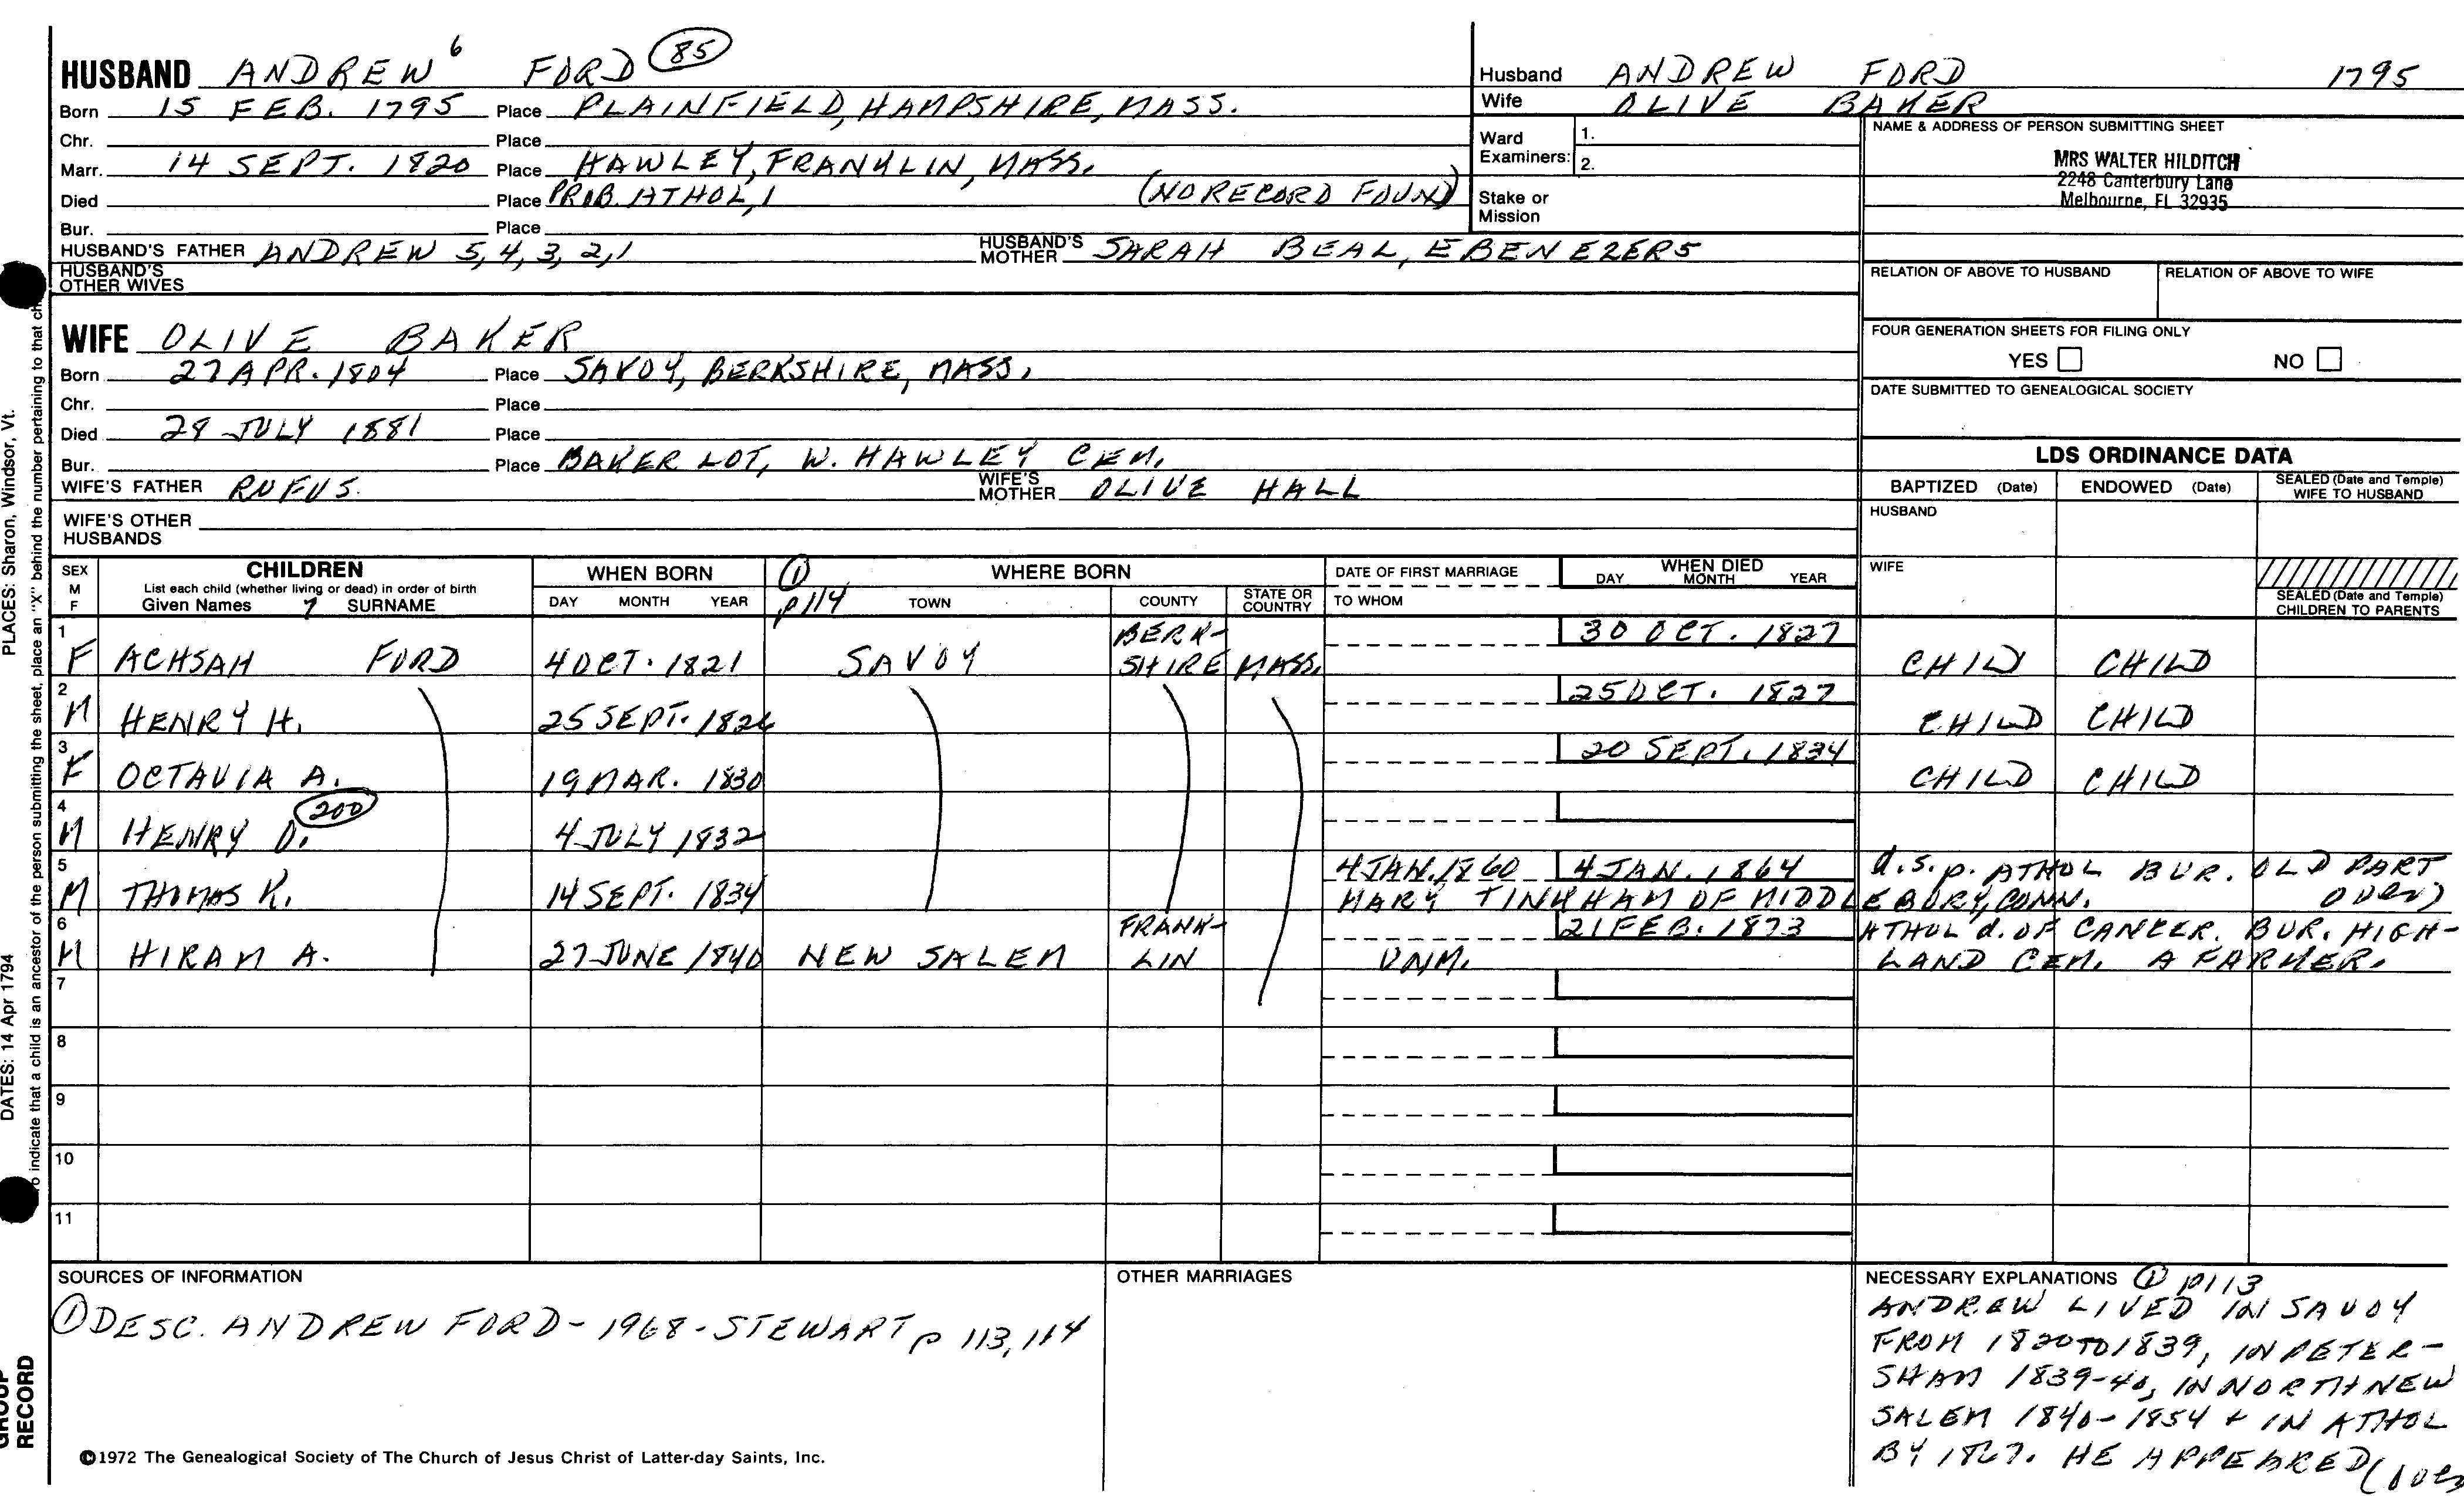 HUSBAND ANDREW 6 FORD 85
Born 15 FEB. 1795 Place PLAINFIELD, HAMPSHIRE, MASS.
Chr. Place
Marr. 14 SEPT. 1820 Place HAWLEY, FRANKLIN, MASS.
Died Place PROB. ATHOL, (NO RECORD FOUND)
Bur. Place
HUSBAND'S FATHER ANDREW 5, 4, 3, 2, 1 HUSBAND'S MOTHER SARAH BEAL, EBENEZER5
HUSBAND'S OTHER WIVES
Husband ANDREW FORD 1795
Wife OLIVE BAKER
Ward Examiners: 1.
2.
Stake or Mission
NAME & ADDRESS OF PERSON SUBMITTING SHEET
MRS WALTER HILDITCH
2248 Canterbury Lane
Melbourne, FL 32935
RELATION OF ABOVE TO HUSBAND RELATION OF ABOVE TO WIFE
FOUR GENERATION SHEETS FOR FILING ONLY
YES NO
DATE SUBMITTED TO GENEALOGICAL SOCIETY
WIFE OLIVE BAKER
Born 27 APR. 1804 Place SAVOY, BERKSHIRE, MASS.
Chr. Place
Died 29 JULY 1881 Place
Bur. Place BAKER LOT, W. HAWLEY CEM.
WIFE'S FATHER RUFUS. WIFE'S MOTHER OLIVE HALL
WIFE'S OTHER HUSBANDS
LDS ORDINANCE DATA
BAPTIZED (Date) ENDOWED (Date) SEALED (Date and Temple) WIFE TO HUSBAND
HUSBAND
WIFE
SEALED (Date and Temple) CHILDREN TO PARENTS
SEX M F
CHILDREN
List each child (whether living or dead) in order of birth
Given Names 7 SURNAME
WHEN BORN
DAY MONTH YEAR
1 p 114
WHERE BORN
TOWN COUNTY STATE OR COUNTRY
DATE OF FIRST MARRIAGE
TO WHOM
WHEN DIED
DAY MONTH YEAR
1 F ACHSAH FORD 4 OCT. 1821 SAVOY BERK-SHIRE MASS. 30 OCT. 1827 CHILD CHILD
2 M HENRY H. 25 SEPT. 1826 25 OCT. 1827 CHILD CHILD
3 F OCTAVIA A. 19 MAR. 1830 20 SEPT. 1834 CHILD CHILD
4 M HENRY D. 200 4 JULY 1832
5 M THOMAS K. 14 SEPT. 1834 4 JAN. 1860 4 JAN. 1864 d.s.p. ATHOL BUR. OLD PART
MARY TINKHAM OF MIDDLEBURY, CONN. OVER)
6 M HIRAM A. 27 JUNE 1840 NEW SALEM FRANK-LIN UNM. 21 FEB. 1873 ATHOL d. OF CANCER. BUR. HIGH-
LAND CEM. A FARMER.
7
8
9
10
11
SOURCES OF INFORMATION
1 DESC. ANDREW FORD - 1968 - STEWART p 113, 114
OTHER MARRIAGES
NECESSARY EXPLANATIONS 1 p113
ANDREW LIVED IN SAVOY
FROM 1820 TO 1839, IN PETER-
SHAM 1839-40, IN NORTH NEW
SALEM 1840-1854 + IN ATHOL
BY 1867. HE APPEARED (over
©1972 The Genealogical Society of The Church of Jesus Christ of Latter-day Saints, Inc.
PLACES: Sharon, Windsor, Vt.
DATES: 14 Apr 1794
indicate that a child is an ancestor of the person submitting the sheet, place an "X" behind the number pertaining to that
GROUP RECORD